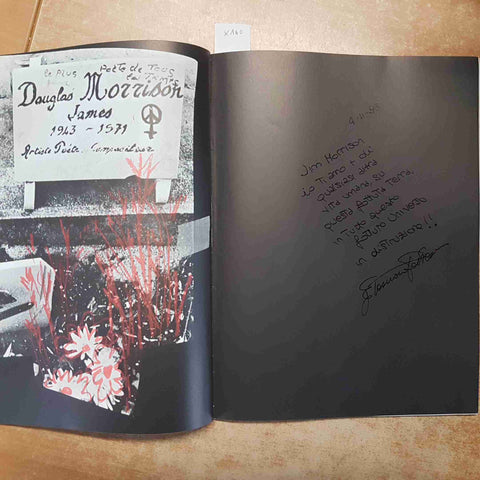 X160
le Plus Poete de Tous
les Temps
Douglas Morrison
James
1943 - 1971
Artiste Poète. Compositeur
Jim Morrison
io Ti amo + di
qualsiasi altra
vita umana, su
questa fottuta terra,
in Tutto questo
fottuto Universo
in distruzione!!